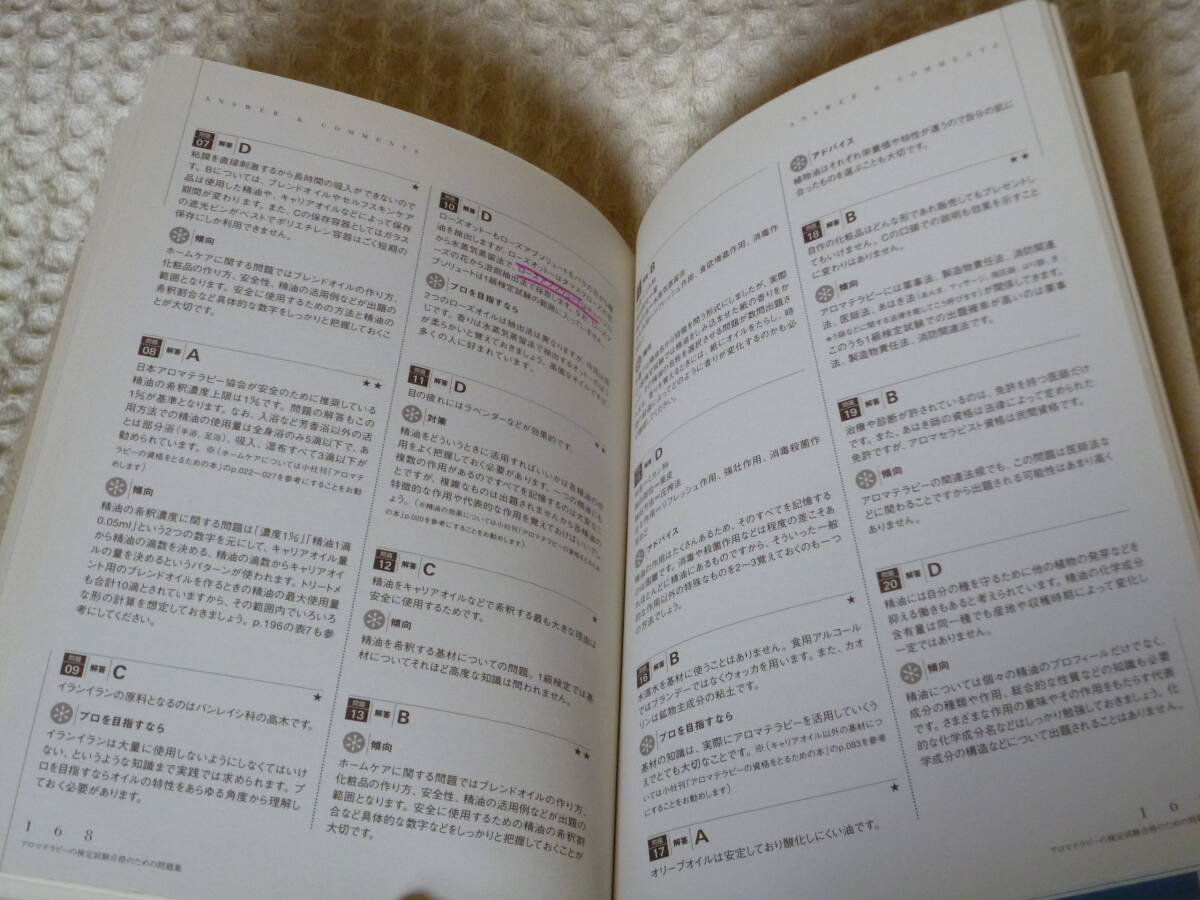 ANSWER & COMMENTS
問題 07 解答 D
★
粘膜を直接刺激するから長時間の吸入ができないので
す。Bについては、ブレンドオイルやセルフスキンケア
品は使用した精油や、キャリアオイルなどによって保存
期間が変わります。また、Cの保存容器としてはガラス
の遮光ビンがベストでポリエチレン容器はごく短期の
保存にしか利用できません。
傾向
ホームケアに関する問題ではブレンドオイルの作り方、
化粧品の作り方、安全性、精油の活用例などが出題の
範囲となります。安全に使用するための方法と精油の
希釈割合など具体的な数字をしっかりと把握しておくこ
とが大切です。
問題 08 解答 A
★★
日本アロマテラピー協会が安全のために推奨している
精油の希釈濃度上限は1%です。問題の解答もこの
1%が基準となります。なお、入浴など芳香浴以外の活
用方法での精油の使用量は全身浴のみ5滴以下で、あ
とは部分浴(手浴、足浴)、吸入、湿布すべて3滴以下が
勧められています。※(ホームケアについては小社刊「アロマテ
ラピーの資格をとるための本」のp.022〜027を参考にすることをお勧
めします)
傾向
精油の希釈濃度に関する問題は「濃度1%」「精油1滴
0.05ml」という2つの数字を元にして、キャリアオイル量
から精油の滴数を決める、精油の滴数からキャリアオイ
ルの量を決めるというパターンが使われます。トリートメ
ント用のブレンドオイルを作るときの精油の最大使用量
も合計10滴とされていますから、その範囲内でいろいろ
な形の計算を想定しておきましょう。p.196の表7も参
考にしてください。
問題 09 解答 C
★
イランイランの原料となるのはバンレイシ科の高木です。
プロを目指すなら
イランイランは大量に使用しないようにしなくてはいけ
ない、というような知識まで実践では求められます。プ
ロを目指すならオイルの特性をあらゆる角度から理解し
ておく必要があります。
168
アロマテラピーの検定試験合格のための問題集
問題 10 解答 D
ローズオットーもローズアブソリュートもバラの花から精
油を抽出しますが、ローズオットーは
から水蒸気蒸留法で
ーズの花から溶剤抽出法で採油します。
ブソリュートは1級検定試験の範囲に入っていません。
プロを目指すなら
2つのローズオイルは抽出法は異なりますが、
す。香りは水蒸気蒸留法で抽出するオットー
が柔らかいと覚えておきましょう。高価なオイルですが
多くの人に好まれています。
問題 11 解答 D
★★
目の疲れにはラベンダーなどが効果的です。
対策
精油をどういうときに活用すればいいかは各精油の作
用をよく把握しておく必要があります。一つの精油にも
複数の作用があるのですべてを記憶するのは大変なこ
とですが、複雑なものは出題されませんから各精油の
特徴的な作用や代表的な作用を覚えておけばいいでし
ょう。(※精油の効果については小社刊「アロマテラピーの資格をとるため
の本」p.020を参考にすることをお勧めします)
問題 12 解答 C
★
精油をキャリアオイルなどで希釈する最も大きな理由は
安全に使用するためです。
傾向
精油を希釈する基材についての問題。1級検定では基
材についてそれほど高度な知識は問われません。
問題 13 解答 B
★★
傾向
ホームケアに関する問題ではブレンドオイルの作り方、
化粧品の作り方、安全性、精油の活用例などが出題の
範囲となります。安全に使用するための精油の希釈割
合など具体的な数字などをしっかりと把握しておくことが
大切です。
ANSWER & COMMENTS
B
水蒸気蒸留法
リフレッシュ作用、食欲増進作用、消毒作
から特徴を問う形式にしましたが、実際
定試験では精油をしみ込ませた紙の香りをか
の精油の名称を選択させる問題が数問出題さ
りを覚えるときには、紙にオイルをたらし、時
どのように香りが変化するのかも必
D
ミカン科
果皮
圧搾法
リフレッシュ作用、強壮作用、消毒殺菌作
アドバイス
精油の作用はたくさんあるため、そのすべてを記憶する
のは困難です。消毒や殺菌作用などは程度の差こそあ
ればほとんどに精油にあるものですから、そういった一般
的な作用以外の特殊なものを2〜3覚えておくのも一つ
の方法でしょう。
問題 16 解答 B
★
水道水を基材に使うことはありません。食用アルコール
ではブランデーではなくウォッカを用います。また、カオ
リンは鉱物主成分の粘土です。
プロを目指すなら
基材の知識は、実際にアロマテラピーを活用していくう
えでとても大切なことです。※(キャリアオイル以外の基材につ
いては小社刊「アロマテラピーの資格をとるための本」のp.083を参考
にすることをお勧めします)
問題 17 解答 A
★
オリーブオイルは安定しており酸化しにくい油です。
アドバイス
植物油はそれぞれ栄養価や特性が違うので自分の肌に
合ったものを選ぶことも大切です。
問題 18 解答 B
★★
自作の化粧品はどんな形であれ販売してもプレゼントし
てもいけません。Cの口頭での説明も効果を示すこと
に変わりはありません。
傾向
アロマテラピーには薬事法、製造物責任法、消防関連
法、医師法、あはき法(あん摩、マッサージ、指圧師、はり師、き
ゅう師などに関する法律を略してこう呼びます)が関係してきます。
このうち1級検定試験での出題確率が高いのは薬事
法、製造物責任法、消防関連法です。
問題 19 解答 B
治療や診断が許されているのは、免許を持つ医師だけ
です。また、あはき師の資格は法律によって定められた
免許ですが、アロマセラピスト資格は民間資格です。
傾向
アロマテラピーの関連法規でも、この問題は医師法な
どに関わることですから出題される可能性はあまり高く
ありません。
問題 20 解答 D
精油には自分の種を守るために他の植物の発芽などを
抑える働きもあると考えられています。精油の化学成分
含有量は同一種でも産地や収穫時期によって変化し
一定ではありません。
傾向
精油については個々の精油のプロフィールだけでなく、
成分の種類や作用、総合的な性質などの知識も必要
です。さまざまな作用の意味やその作用をもたらす代表
的な化学成分名などはしっかり勉強しておきましょう。化
学成分の構造などについて出題されることはありません。
16
アロマテラピーの検定試験合格のための問題集